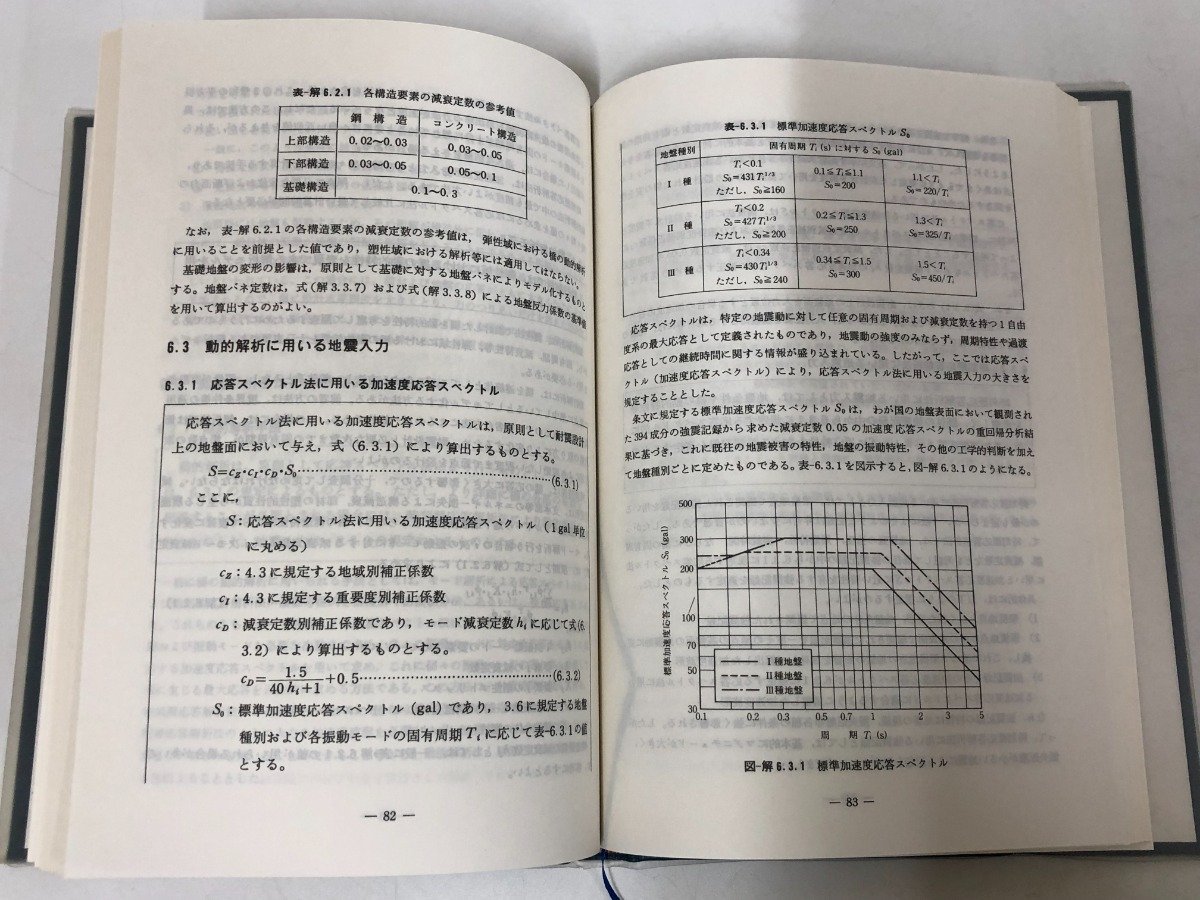 表-解 6.2.1 各構造要素の減衰定数の参考値
鋼構造 コンクリート構造
上部構造 0.02〜0.03 0.03〜0.05
下部構造 0.03〜0.05 0.05〜0.1
基礎構造 0.1〜0.3
なお，表-解 6.2.1 の各構造要素の減衰定数の参考値は，弾性域における橋の動的解析
に用いることを前提とした値であり，塑性域における解析等には適用してはならない。
基礎地盤の変形の影響は，原則として基礎に対する地盤バネによりモデル化するものと
する。地盤バネ定数は，式（解 3.3.7）および式（解 3.3.8）による地盤反力係数の基準値
を用いて算出するのがよい。
6.3 動的解析に用いる地震入力
6.3.1 応答スペクトル法に用いる加速度応答スペクトル
応答スペクトル法に用いる加速度応答スペクトルは，原則として耐震設計
上の地盤面において与え，式（6.3.1）により算出するものとする。
S=cZ・cI・cD・S0……(6.3.1)
ここに，
S：応答スペクトル法に用いる加速度応答スペクトル（1 gal 単位
に丸める）
cZ：4.3 に規定する地域別補正係数
cI：4.3 に規定する重要度別補正係数
cD：減衰定数別補正係数であり，モード減衰定数 hi に応じて式（6.
3.2）により算出するものとする。
cD=1.5/(40 hi+1)+0.5……(6.3.2)
S0：標準加速度応答スペクトル（gal）であり，3.6 に規定する地盤
種別および各振動モードの固有周期 Ti に応じて表-6.3.1 の値
とする。
— 82 —
表-6.3.1 標準加速度応答スペクトル S0
地盤種別 固有周期 Ti (s) に対する S0 (gal)
I 種
Ti<0.1
S0=431Ti1/3
ただし，S0≧160
0.1≦Ti≦1.1
S0=200
1.1<Ti
S0=220/Ti
II 種
Ti<0.2
S0=427Ti1/3
ただし，S0≧200
0.2≦Ti≦1.3
S0=250
1.3<Ti
S0=325/Ti
III 種
Ti<0.34
S0=430Ti1/3
ただし，S0≧240
0.34≦Ti≦1.5
S0=300
1.5<Ti
S0=450/Ti
応答スペクトルは，特定の地震動に対して任意の固有周期および減衰定数を持つ1自由
度系の最大応答として定義されたものであり，地震動の強度のみならず，周期特性や過渡
応答としての継続時間に関する情報が盛り込まれている。したがって，ここでは応答スペ
クトル（加速度応答スペクトル）により，応答スペクトル法に用いる地震入力の大きさを
規定することとした。
条文に規定する標準加速度応答スペクトル S0 は，わが国の地盤表面において観測され
た 394 成分の強震記録から求めた減衰定数 0.05 の加速度応答スペクトルの重回帰分析結
果に基づき，これに既往の地震被害の特性，地盤の振動特性，その他の工学的判断を加え
て地盤種別ごとに定めたものである。表-6.3.1 を図示すると，図-解 6.3.1 のようになる。
標準加速度応答スペクトル S0 (gal)
500
300
200
100
70
50
30
I 種地盤
II 種地盤
III 種地盤
0.1 0.2 0.3 0.5 0.7 1 2 3 5
周 期 Ti (s)
図-解 6.3.1 標準加速度応答スペクトル
— 83 —